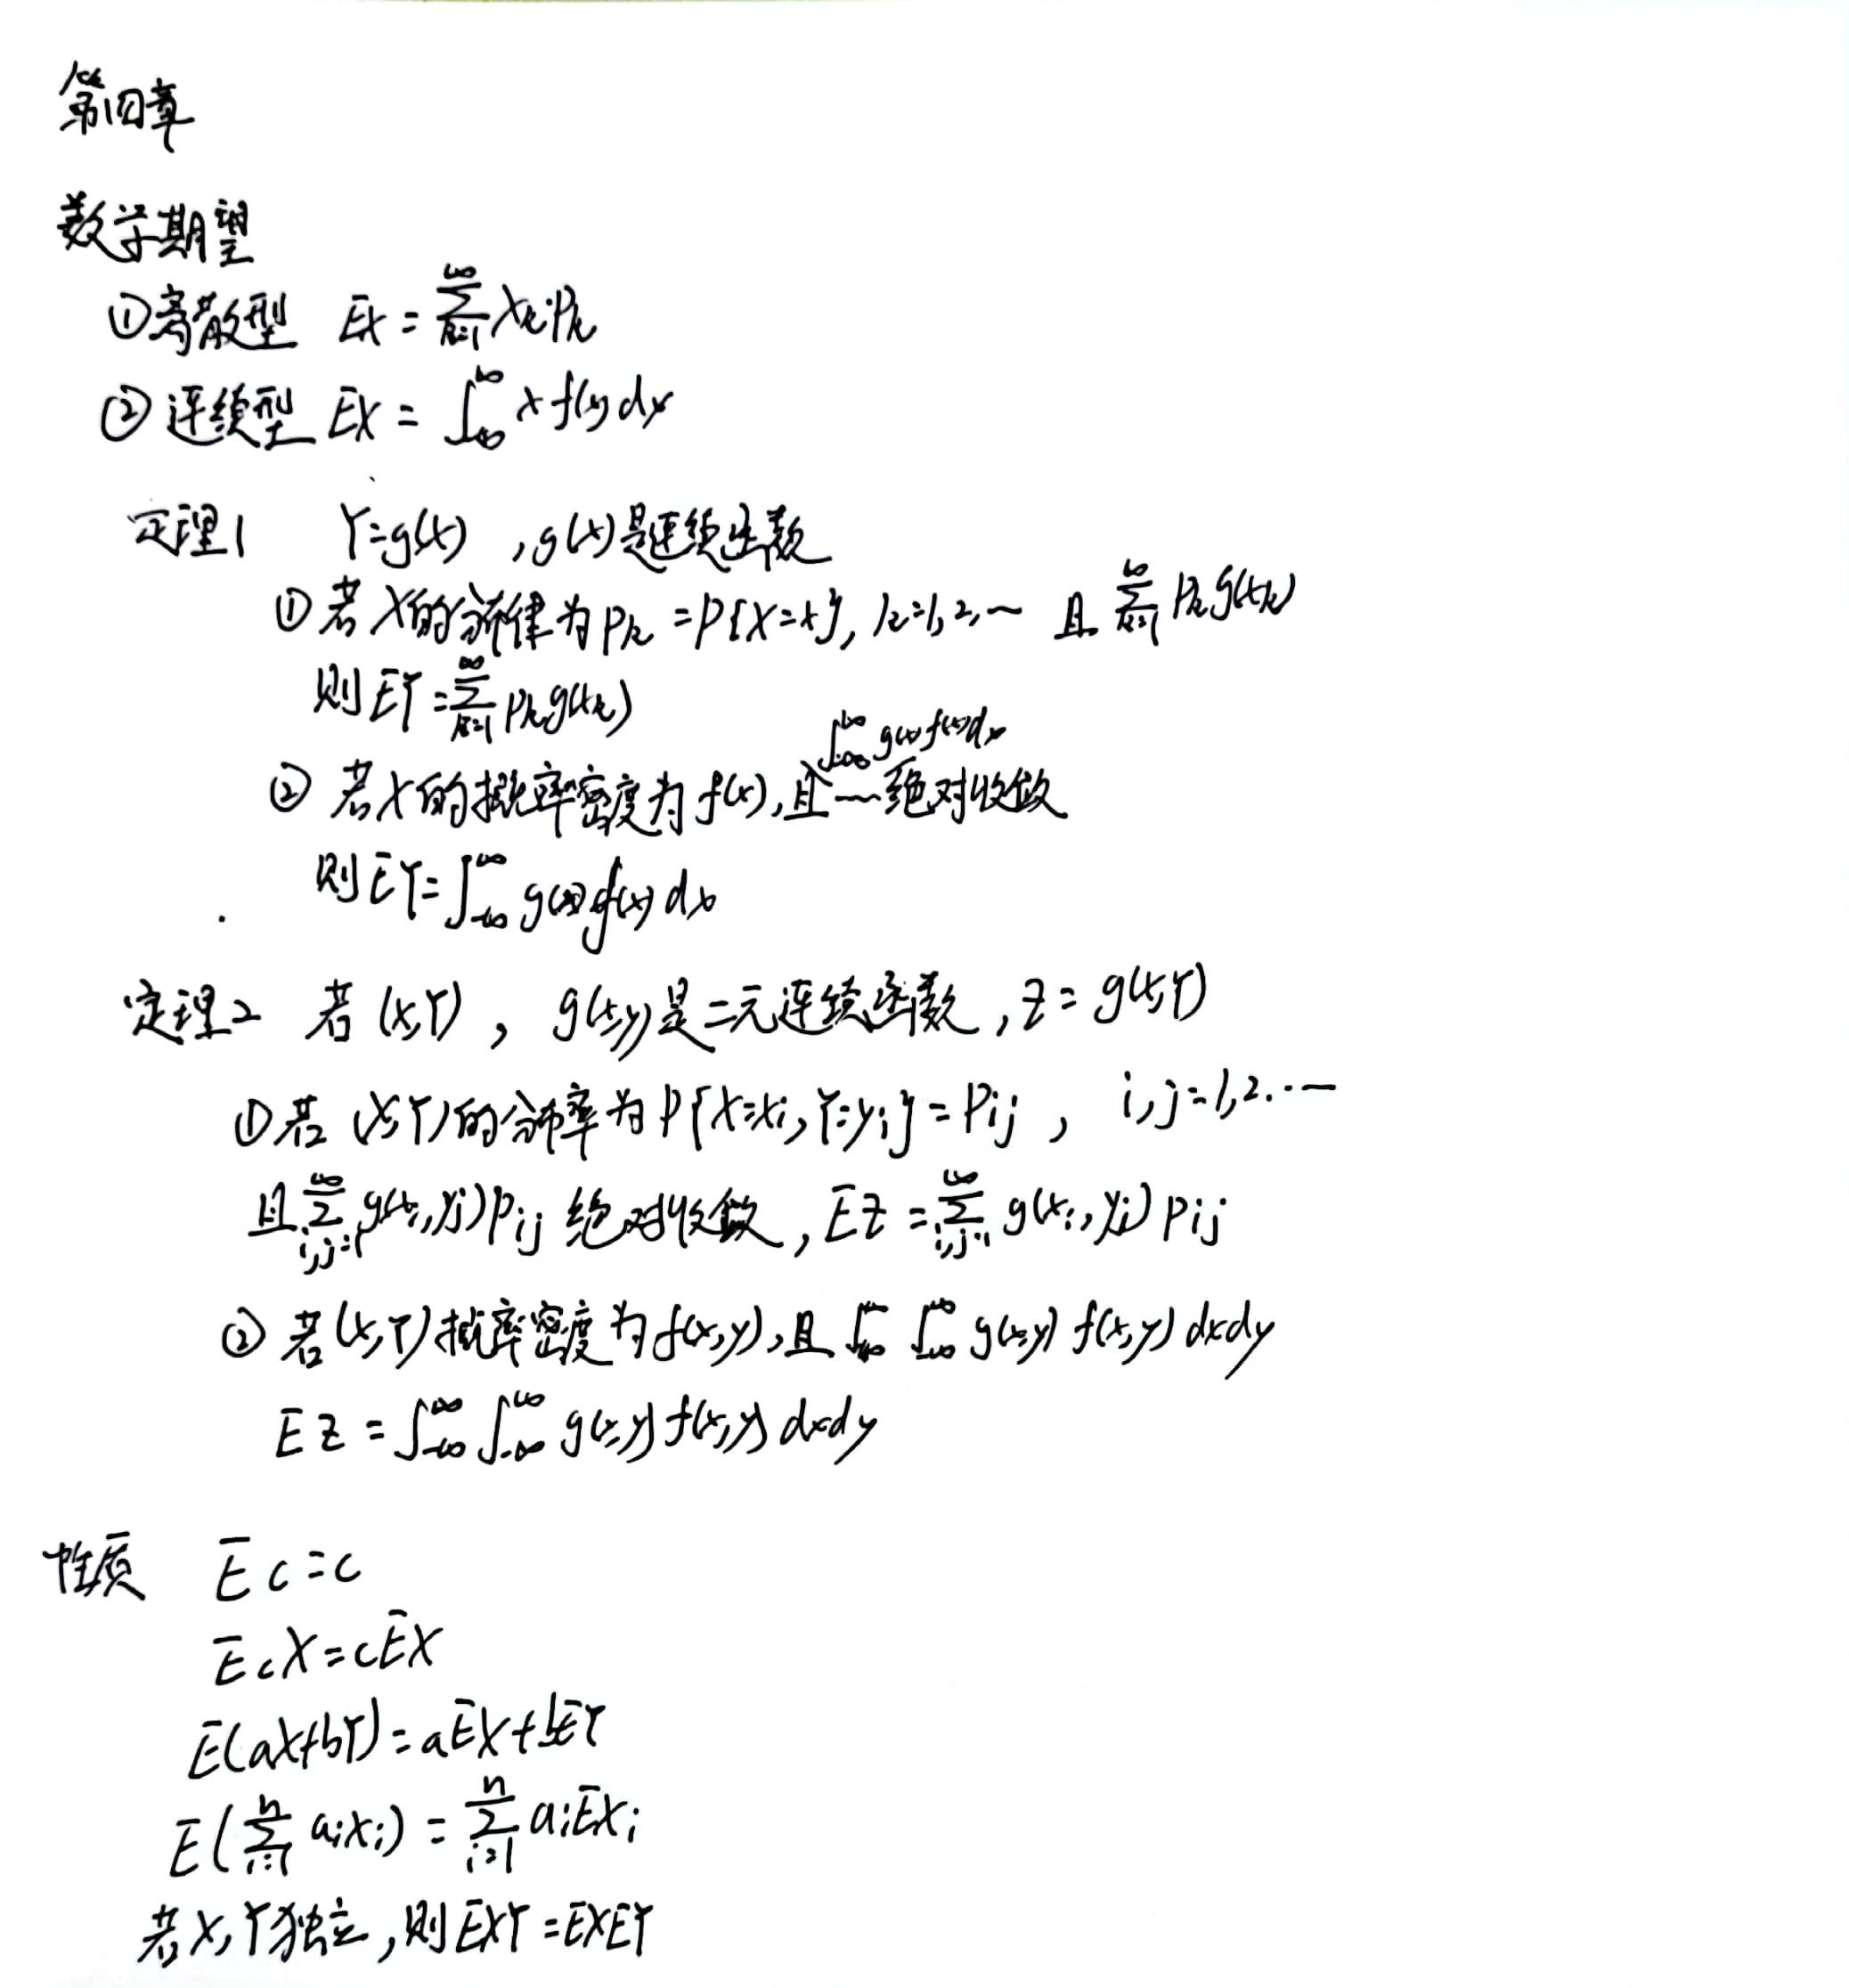 第四章
数学期望
①离散型 EX = \sum_{k=1}^{∞} x_k p_k
②连续型 EX = ∫_{-∞}^{∞} x f(x) dx
定理1 Y=g(X) ,g(x)是连续函数
①若X的分布律为p_k =P{X=x}, k=1,2,… 且 \sum_{k=1}^{∞} p_k g(x_k)
则EY=\sum_{k=1}^{∞} p_k g(x_k)
∫_{-∞}^{∞} g(x)f(x)dx
②若X的概率密度为f(x),且…绝对收敛
则EY=∫_{-∞}^{∞} g(x)f(x)dx
定理2 若(X,Y), g(x,y)是二元连续函数,Z=g(X,Y)
①若(X,Y)的分布率为P{X=x_i,Y=y_j}=p_{ij}, i,j=1,2.…
且\sum_{i,j=1}^{∞} g(x_i,y_j)p_{ij}绝对收敛,EZ=\sum_{i,j=1}^{∞} g(x_i,y_j)p_{ij}
②若(X,Y)概率密度为f(x,y),且∫_{-∞}^{∞} ∫_{-∞}^{∞} g(x,y) f(x,y) dxdy
EZ=∫_{-∞}^{∞} ∫_{-∞}^{∞} g(x,y) f(x,y) dxdy
性质 Ec=c
EcX=cEX
E(aX+bY)=aEX+bEY
E(\sum_{i=1}^{n} a_i X_i) = \sum_{i=1}^{n} a_i EX_i
若X,Y独立,则EXY=EXEY